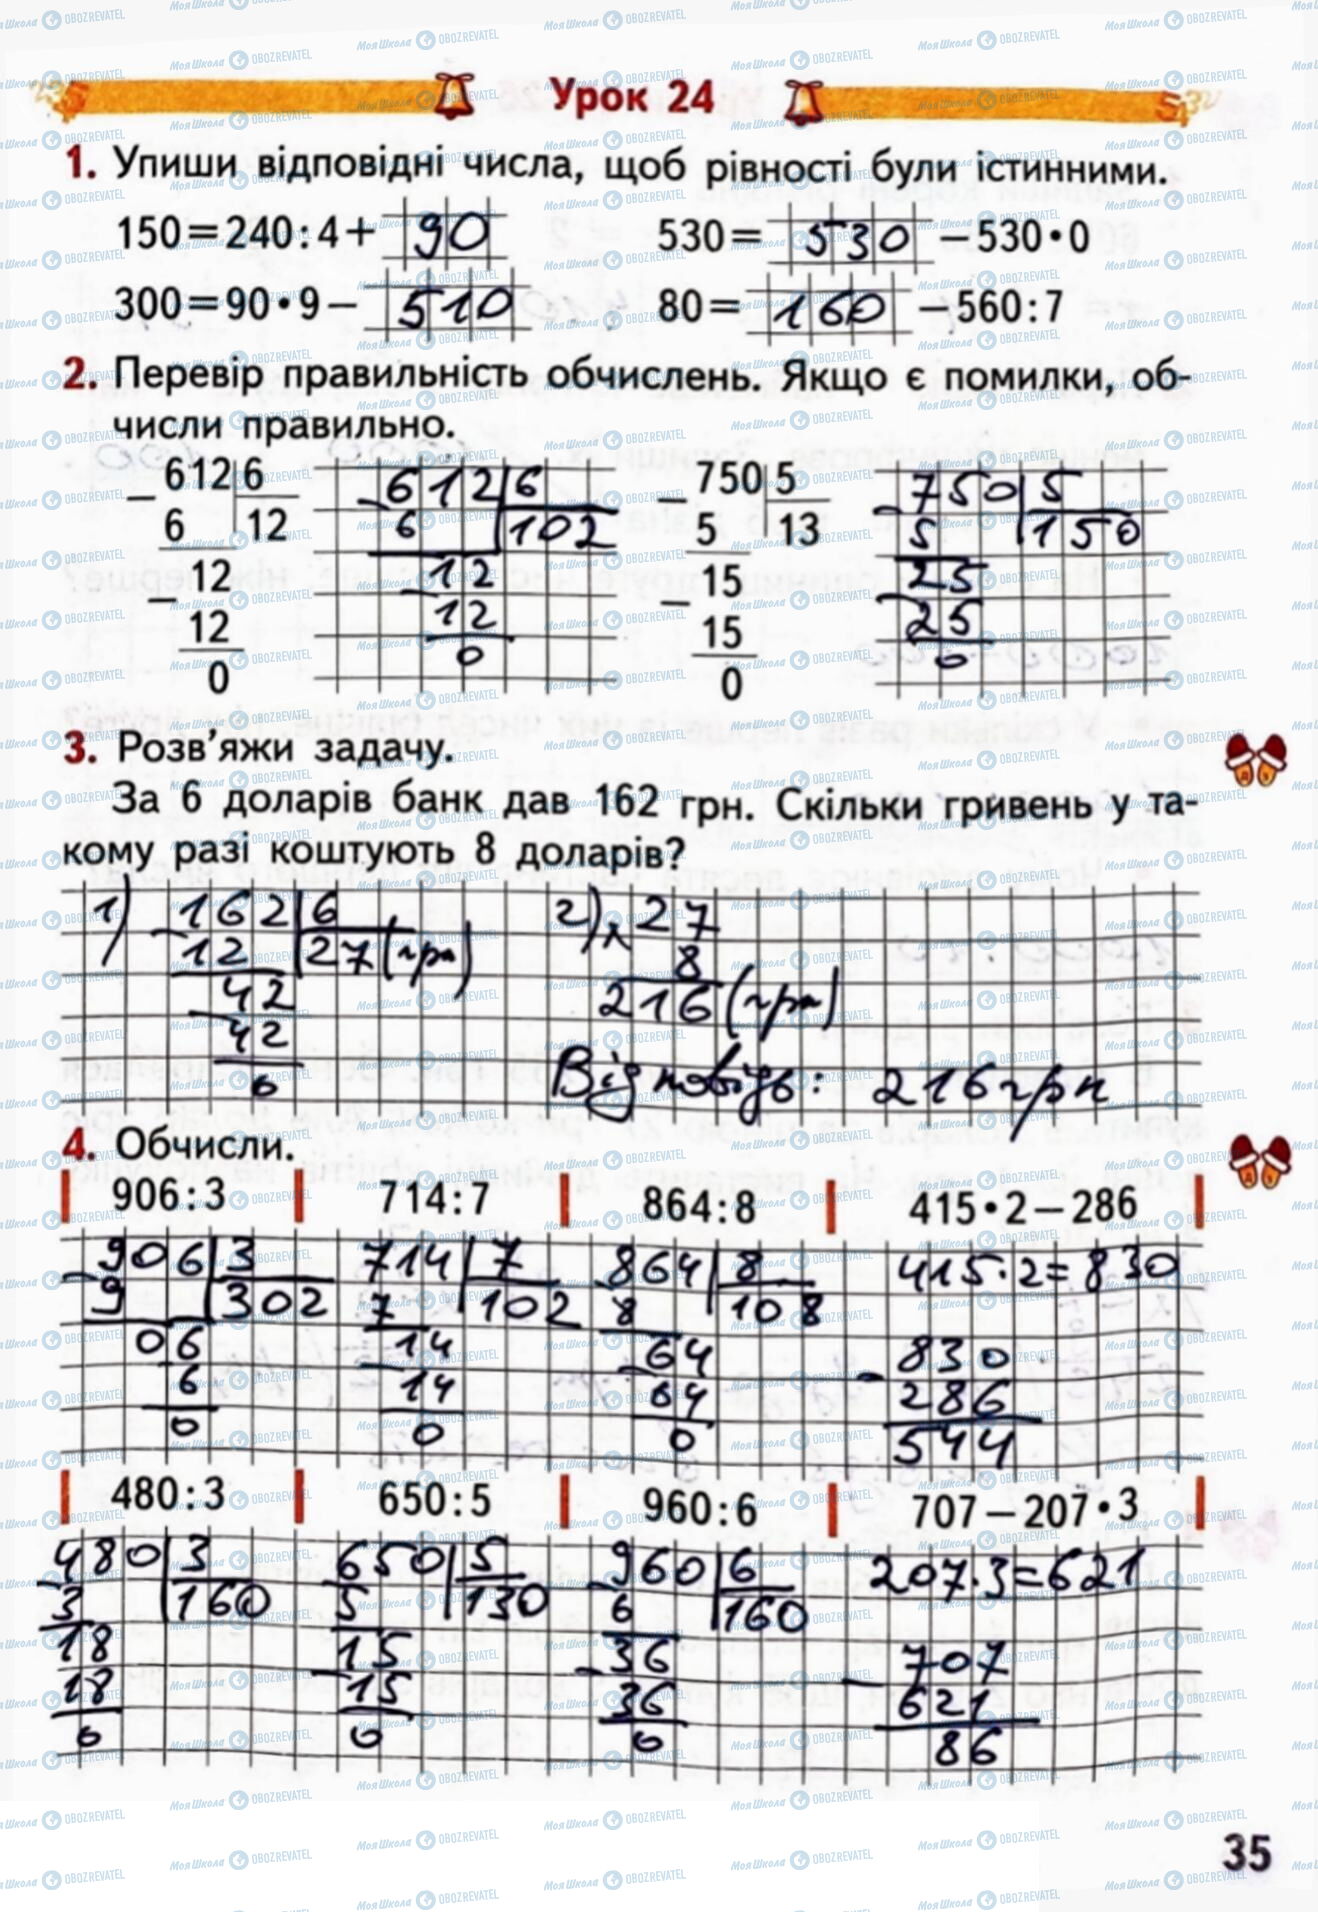 Урок 24
1. Упиши відповідні числа, щоб рівності були істинними.
150=240:4+ 90 530= 530 −530•0
300=90•9− 510 80= 160 −560:7
2. Перевір правильність обчислень. Якщо є помилки, об-
числи правильно.
− 612 6 − 612 6 − 750 5 − 750 5
6 12 6 102 5 13 5 150
− 12 − 12 − 15 − 25
12 12 15 25
0 0 0 0
3. Розв’яжи задачу.
За 6 доларів банк дав 162 грн. Скільки гривень у та-
кому разі коштують 8 доларів?
1) − 162 6 2) × 27
12 27 (грн) 8
− 42 216 (грн)
42
0 Відповідь: 216 грн
4. Обчисли.
906:3 714:7 864:8 415•2−286
− 906 3 714 7 − 864 8 415·2=830
9 302 7 102 8 108
06 14 − 64 − 830
6 14 64 286
0 0 0 544
480:3 650:5 960:6 707−207•3
− 480 3 − 650 5 − 960 6 207·3=621
3 160 5 130 6 160
18 − 15 − 36 − 707
18 15 36 621
0 0 0 86
35
МояШкола OBOZREVATEL